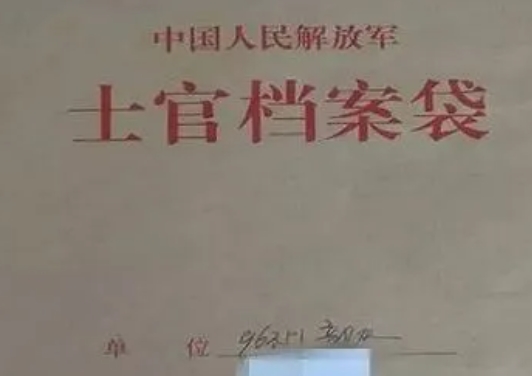 中国人民解放军
士官档案袋
单 位 96351